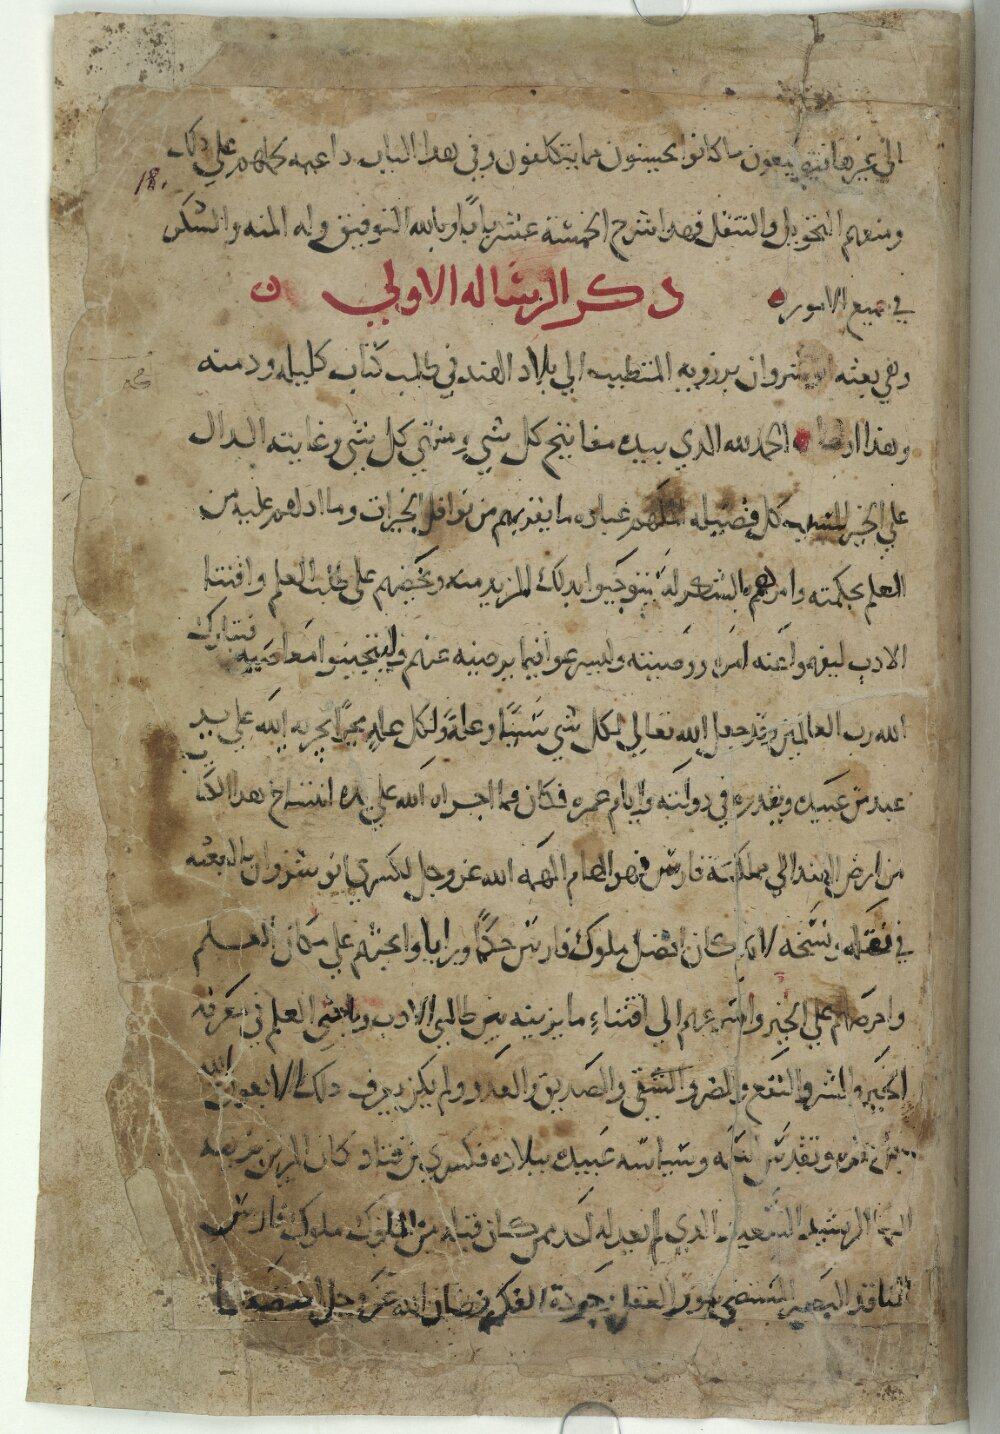 الي غيرها فيتبعون ما كانوا يحسنون مما يتكلفون وفي هذا الباب داعيه كلهم علي ذلك
18.
ومنعهم التحويل والتنقل فهدا شرح الخمسة عشر بابًا وبالله التوفيق وله المنه والشكر
في جميع الامور
ذكر الرساله الاولي
وهي بعثه انوشروان برزويه المتطبب الي بلاد الهند في طلب كتاب كليله ودمنه
الحمد لله الدي بيده مفاتيح كل شي ومنتهي كل شي وغايته الدال
علي الخير كل فضيله الهم عباده ما يقربهم من نوافل الخيرات وما ادلهم عليه من
العلم بحكمته وامرهم بالشكر له ليستوجبوا بدلك المزيد منه وتحضهم علي طلب العلم واقتنا
الادب ليفهموا عنه امره ووصيته وليسرعوا فيما يرضيه عنهم وليجتنبوا معاصيه فتبارك
الله رب العالمين وقد جعل الله تعالي لكل شي سببًا وعلةً ولكل علةٍ مجرًا يجريه الله علي يد
عبد من عبيده ويقدره في دولته وايام عمره فكان مما اجراه الله علي يده انتساخ هدا الكتاب
من ارض الهند الي مملكة فارس فهو الهام الهمه الله عز وجل لكسري انوشروان بالبعثه
في نقله ونسخه لانه كان افضل ملوك فارس حكمًا ورايا وابحثهم علي مكان العلم
واحرصهم علي الخير واسرعهم الي اقتناءِ ما يزينه من طالبي الادب وباغي العلم في معرفه
الخير والشر والنفع والضر والصديق والعدو ولم يكن يعرف دلك الا بعون الله
وسياسته عبيده ببلاده فكسري بن قباد كان
السعيد الدي لم يعدله احد ممن كان قبله من الملوك ملوك فارس
النافد البصير العقل وجودة الفكر الله عز وجل